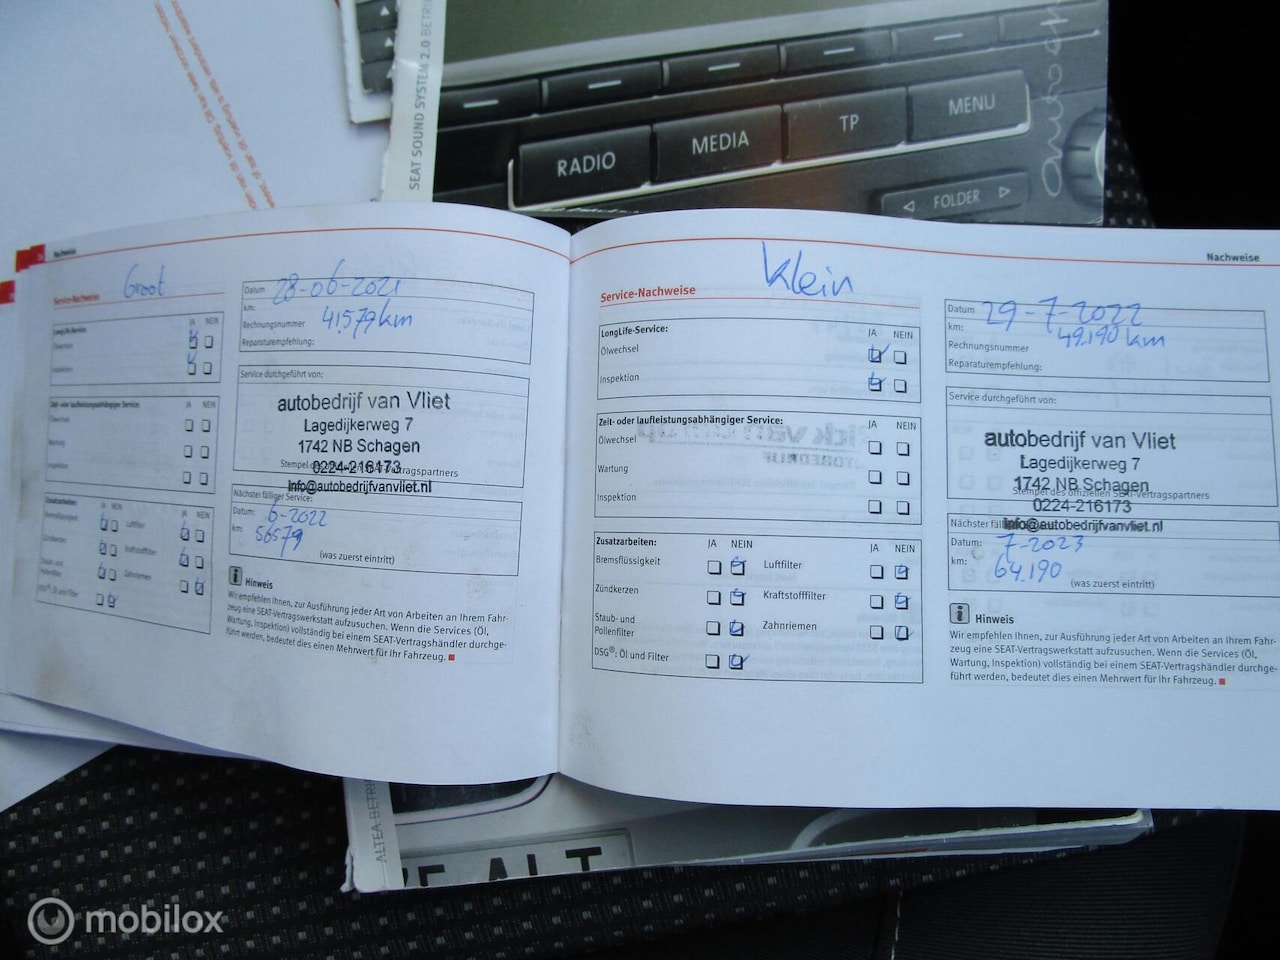 SEAT SOUND SYSTEM 2.0 BETRIE
RADIO
MEDIA
TP
MENU
FOLDER
Nachweise
Groot
Service-Nachweise
LongLife-Service:
JA NEIN
Ölwechsel
Inspektion
Zeit- oder laufleistungsabhängiger Service:
JA NEIN
Ölwechsel
Wartung
Inspektion
Zusatzarbeiten:
JA NEIN JA NEIN
Bremsflüssigkeit Luftfilter
Zündkerzen Kraftstofffilter
Staub- und
Pollenfilter Zahnriemen
DSG®: Öl und Filter
Datum 28-06-2021
km: 41.579 km
Rechnungsnummer
Reparaturempfehlung:
Service durchgeführt von:
autobedrijf van Vliet
Lagedijkerweg 7
1742 NB Schagen
0224-216173
Stempel des offiziellen SEAT-Vertragspartners
info@autobedrijfvanvliet.nl
Nächster fälliger Service:
Datum: 6-2022
km: 56579
(was zuerst eintritt)
Hinweis
Wir empfehlen Ihnen, zur Ausführung jeder Art von Arbeiten an Ihrem Fahr-
zeug eine SEAT-Vertragswerkstatt aufzusuchen. Wenn die Services (Öl,
Wartung, Inspektion) vollständig bei einem SEAT-Vertragshändler durchge-
führt werden, bedeutet dies einen Mehrwert für Ihr Fahrzeug.
Nachweise
Klein
Service-Nachweise
LongLife-Service:
JA NEIN
Ölwechsel
Inspektion
Zeit- oder laufleistungsabhängiger Service:
JA NEIN
Ölwechsel
Wartung
Inspektion
Zusatzarbeiten:
JA NEIN JA NEIN
Bremsflüssigkeit Luftfilter
Zündkerzen Kraftstofffilter
Staub- und
Pollenfilter Zahnriemen
DSG®: Öl und Filter
Datum 29-7-2022
km: 49.190 km
Rechnungsnummer
Reparaturempfehlung:
Service durchgeführt von:
autobedrijf van Vliet
Lagedijkerweg 7
1742 NB Schagen
Stempel des offiziellen SEAT-Vertragspartners
0224-216173
Nächster fäll
info@autobedrijfvanvliet.nl
Datum: 7-2023
km: 64.190
(was zuerst eintritt)
Hinweis
Wir empfehlen Ihnen, zur Ausführung jeder Art von Arbeiten an Ihrem Fahr-
zeug eine SEAT-Vertragswerkstatt aufzusuchen. Wenn die Services (Öl,
Wartung, Inspektion) vollständig bei einem SEAT-Vertragshändler durchge-
führt werden, bedeutet dies einen Mehrwert für Ihr Fahrzeug.
ALTEA BETRIE
E ALT
mobilox